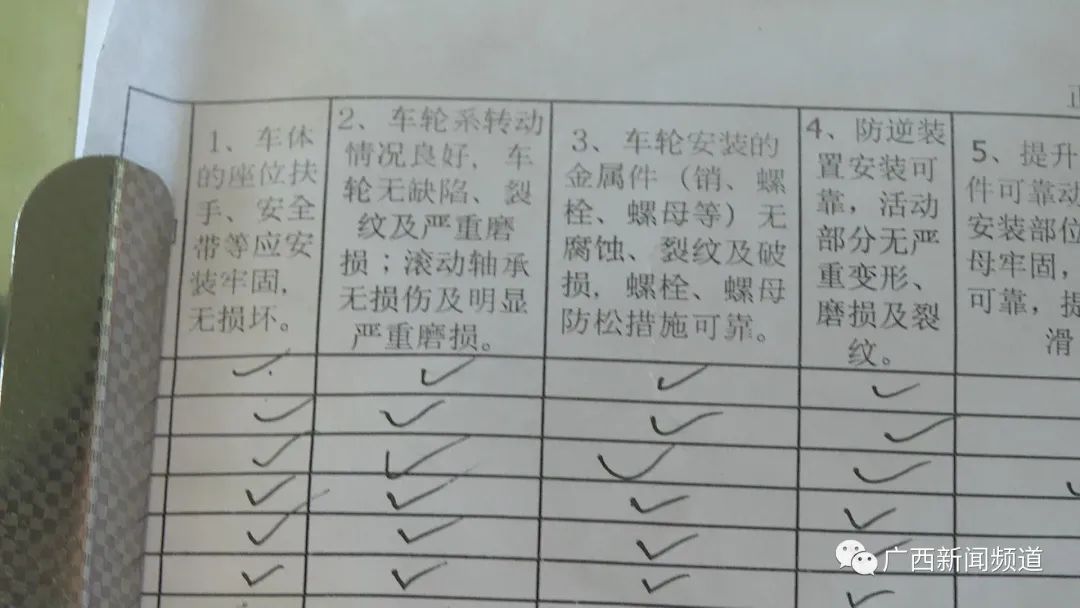 正
1、车体
的座位扶
手、安全
带等应安
装牢固，
无损坏。
2、车轮系转动
情况良好，车
轮无缺陷、裂
纹及严重磨
损；滚动轴承
无损伤及明显
严重磨损。
3、车轮安装的
金属件（销、螺
栓、螺母等）无
腐蚀、裂纹及破
损，螺栓、螺母
防松措施可靠。
4、防逆装
置安装可
靠，活动
部分无严
重变形、
磨损及裂
纹。
5、提升
件可靠动
安装部位
母牢固，
可靠，损
滑
广西新闻频道